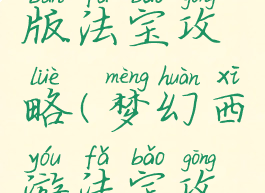 bǎn fǎ bǎo gōng
版法宝攻
lüè mèng huàn xī
略(梦幻西
yóu fǎ bǎo gōng
游法宝攻